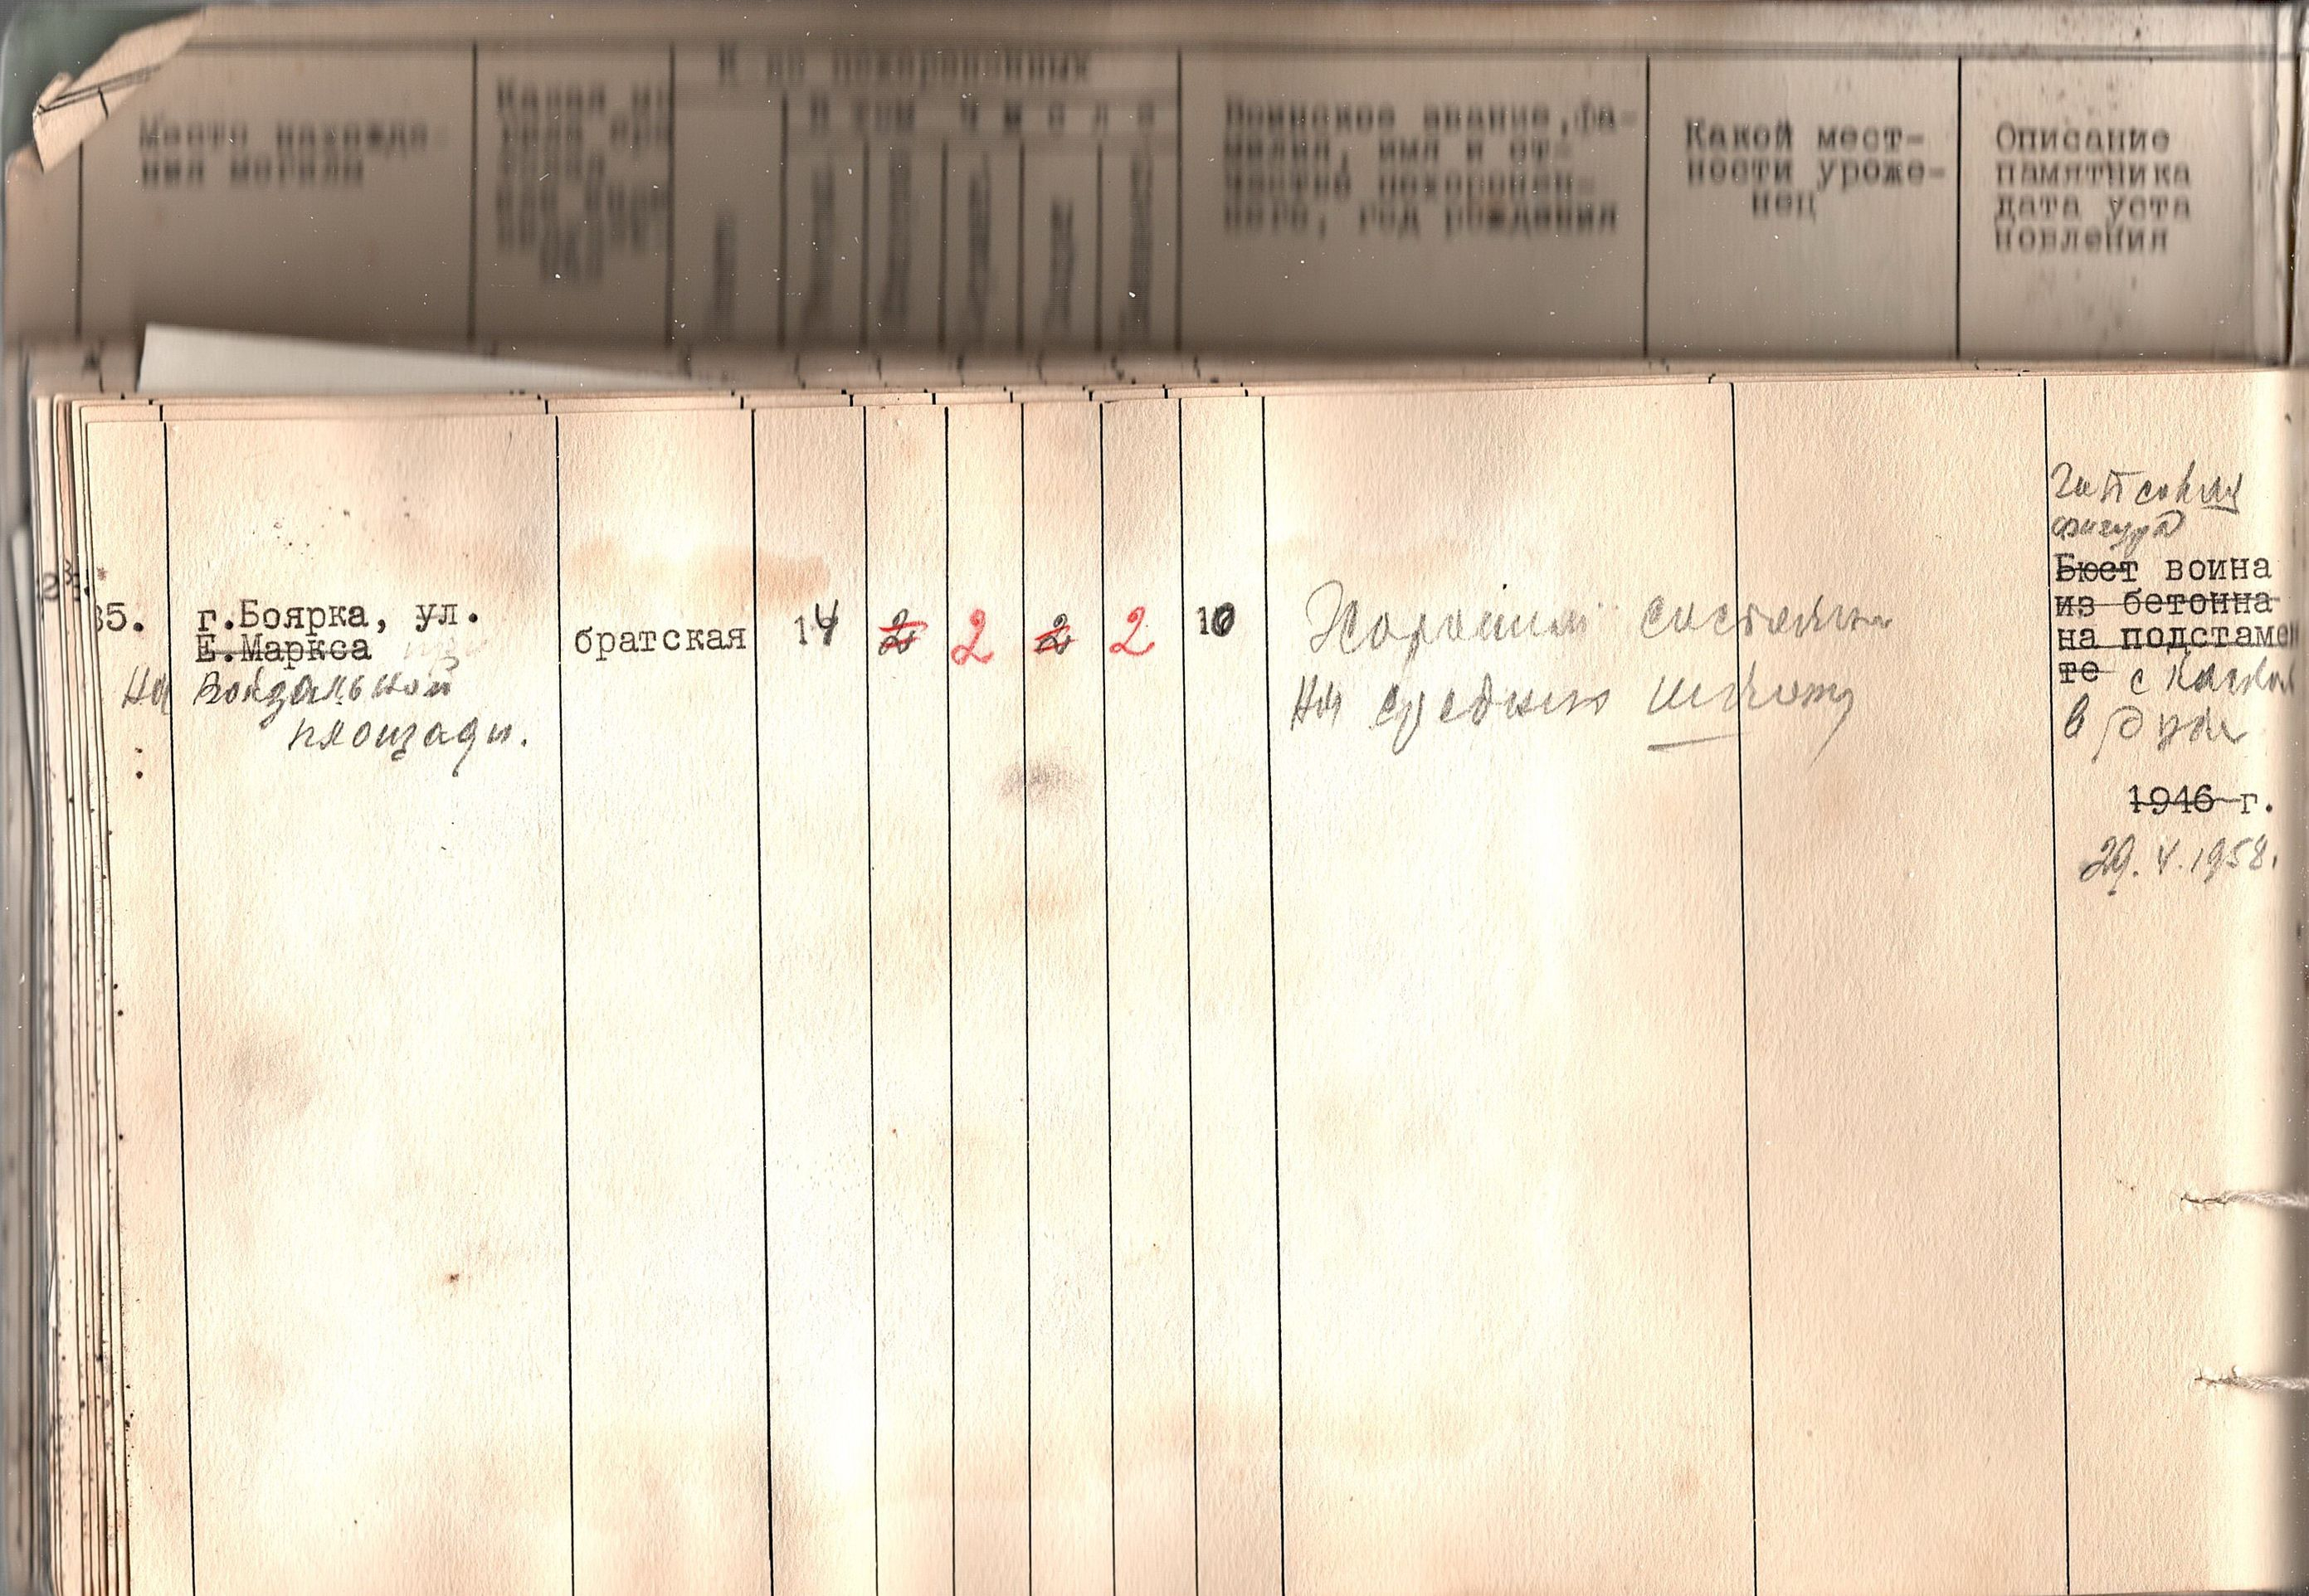 К во похороненных
Место нахожде-
ния могилы
Какая мо
В том числе
Воинское звание, фа-
милия, имя и от-
чество похоронен-
ного, год рождения
Какой мест-
ности уроже-
нец
Описание
памятника
дата уста
новления
35.
г.Боярка, ул.
Е.Маркса
на Вокзальной
площади.
братская
14
2
2
2
2
10
Хорошее состояние
на среднюю школу
Гипсовая
фигура
Бюст воина
из бетонна
на подстамен
те с каской
в руке
1946 г.
29.V.1958.